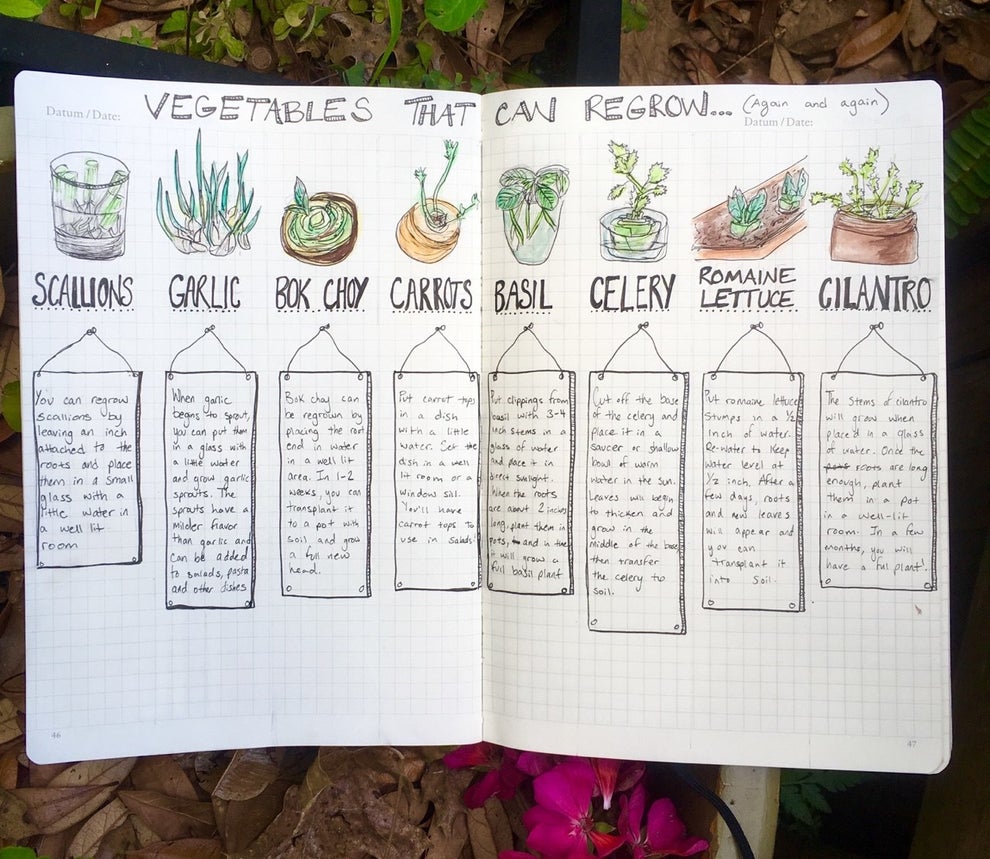 VEGETABLES THAT CAN REGROW... (Again and again)
Datum/Date:
Datum/Date:
SCALLIONS
You can regrow
scallions by
leaving an inch
attached to the
roots and place
them in a small
glass with a
little water in
a well lit
room
GARLIC
When garlic
begins to sprout,
you can put them
in a glass with
a little water
and grow garlic
sprouts. The
sprouts have a
milder flavor
than garlic and
can be added
to salads, pasta
and other dishes
BOK CHOY
Bok choy can
be regrown by
placing the root
end in water
in a well lit
area. In 1-2
weeks, you can
transplant it
to a pot with
soil and grow
a full new
head.
CARROTS
Put carrot tops
in a dish
with a little
water. Set the
dish in a well
lit room or a
window sill.
You'll have
carrot tops to
use in salads.
BASIL
Put clippings from
basil with 3-4
inch stems in a
glass of water
and place it in
direct sunlight.
When the roots
are about 2 inches
long, plant them in
pots, and in time
it will grow a
full basil plant
CELERY
Cut off the base
of the celery and
place it in a
saucer or shallow
bowl of warm
water in the sun.
Leaves will begin
to thicken and
grow in the
middle of the base
then transfer
the celery to
soil.
ROMAINE
LETTUCE
Put romaine lettuce
stumps in a 1/2
inch of water.
Re-water to keep
water level at
1/2 inch. After a
few days, roots
and new leaves
will appear and
you can
transplant it
into soil.
CILANTRO
The stems of cilantro
will grow when
place'd in a glass
of water. Once the
roots are long
enough, plant
them in a pot
in a well-lit
room. In a few
months, you will
have a full plant.
46
47